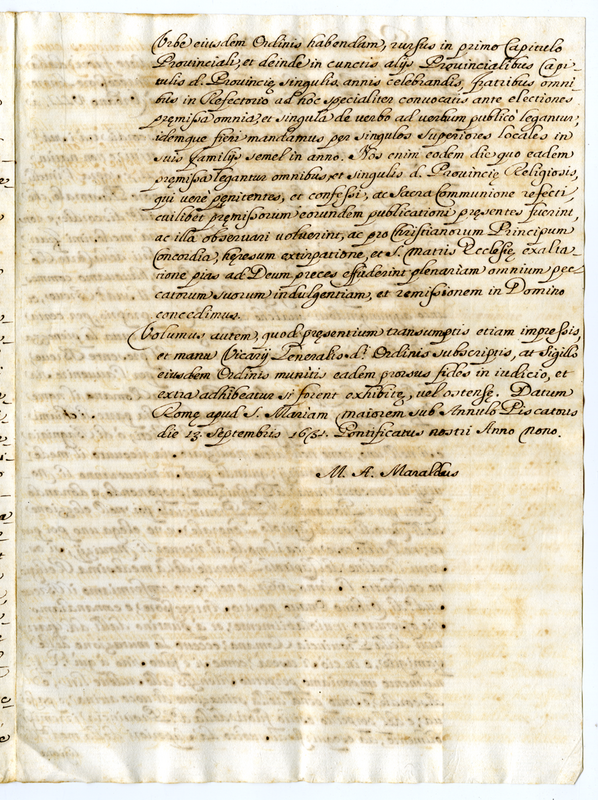 Urbe eiusdem Ordinis habendam, rursus in primo Capitulo
Provinciali, et deinde in cunctis alijs Provincialibus Capi
tulis d. Provincię singulis annis celebrandis, fratribus omni
bus in Refectorio ad hoc specialiter convocatis ante electiones
pręmissa omnia, et singula de verbo ad verbum publicò legantur,
idemque fieri mandamus per singulos Superiores locales in
suis familijs semel in anno. Nos enim eodem die quo eadem
pręmissa legantur omnibus, et singulis d. Provincię Religiosis,
qui verè penitentes, et confessi, ac Sacra Communione refecti
cuilibet pręmissorum eorundem publicationi pręsentes fuerint,
ac illa observari voluerint, ac pro Christianorum Principum
Concordia, hęresum extirpatione, et S. Matris Ecclesię exalta
tione pias ad Deum preces effuderint plenariam omnium pec
catorum suorum indulgentiam, et remissionem in Domino
concedimus.
Volumus autem, quod pręsentium transumptis etiam impressis,
et manu Vicarij Generalis d.i Ordinis subscriptis, ac Sigillo
eiusdem Ordinis munitis eadem prorsus fides in iudicio, et
extra adhibeatur si forent exhibitę, vel ostensę. Datum
Romę apud S. Mariam maiorem sub Annulo Piscatoris
die 13. Septembris 1651. Pontificatus nostri Anno Nono.
M. A. Maraldus